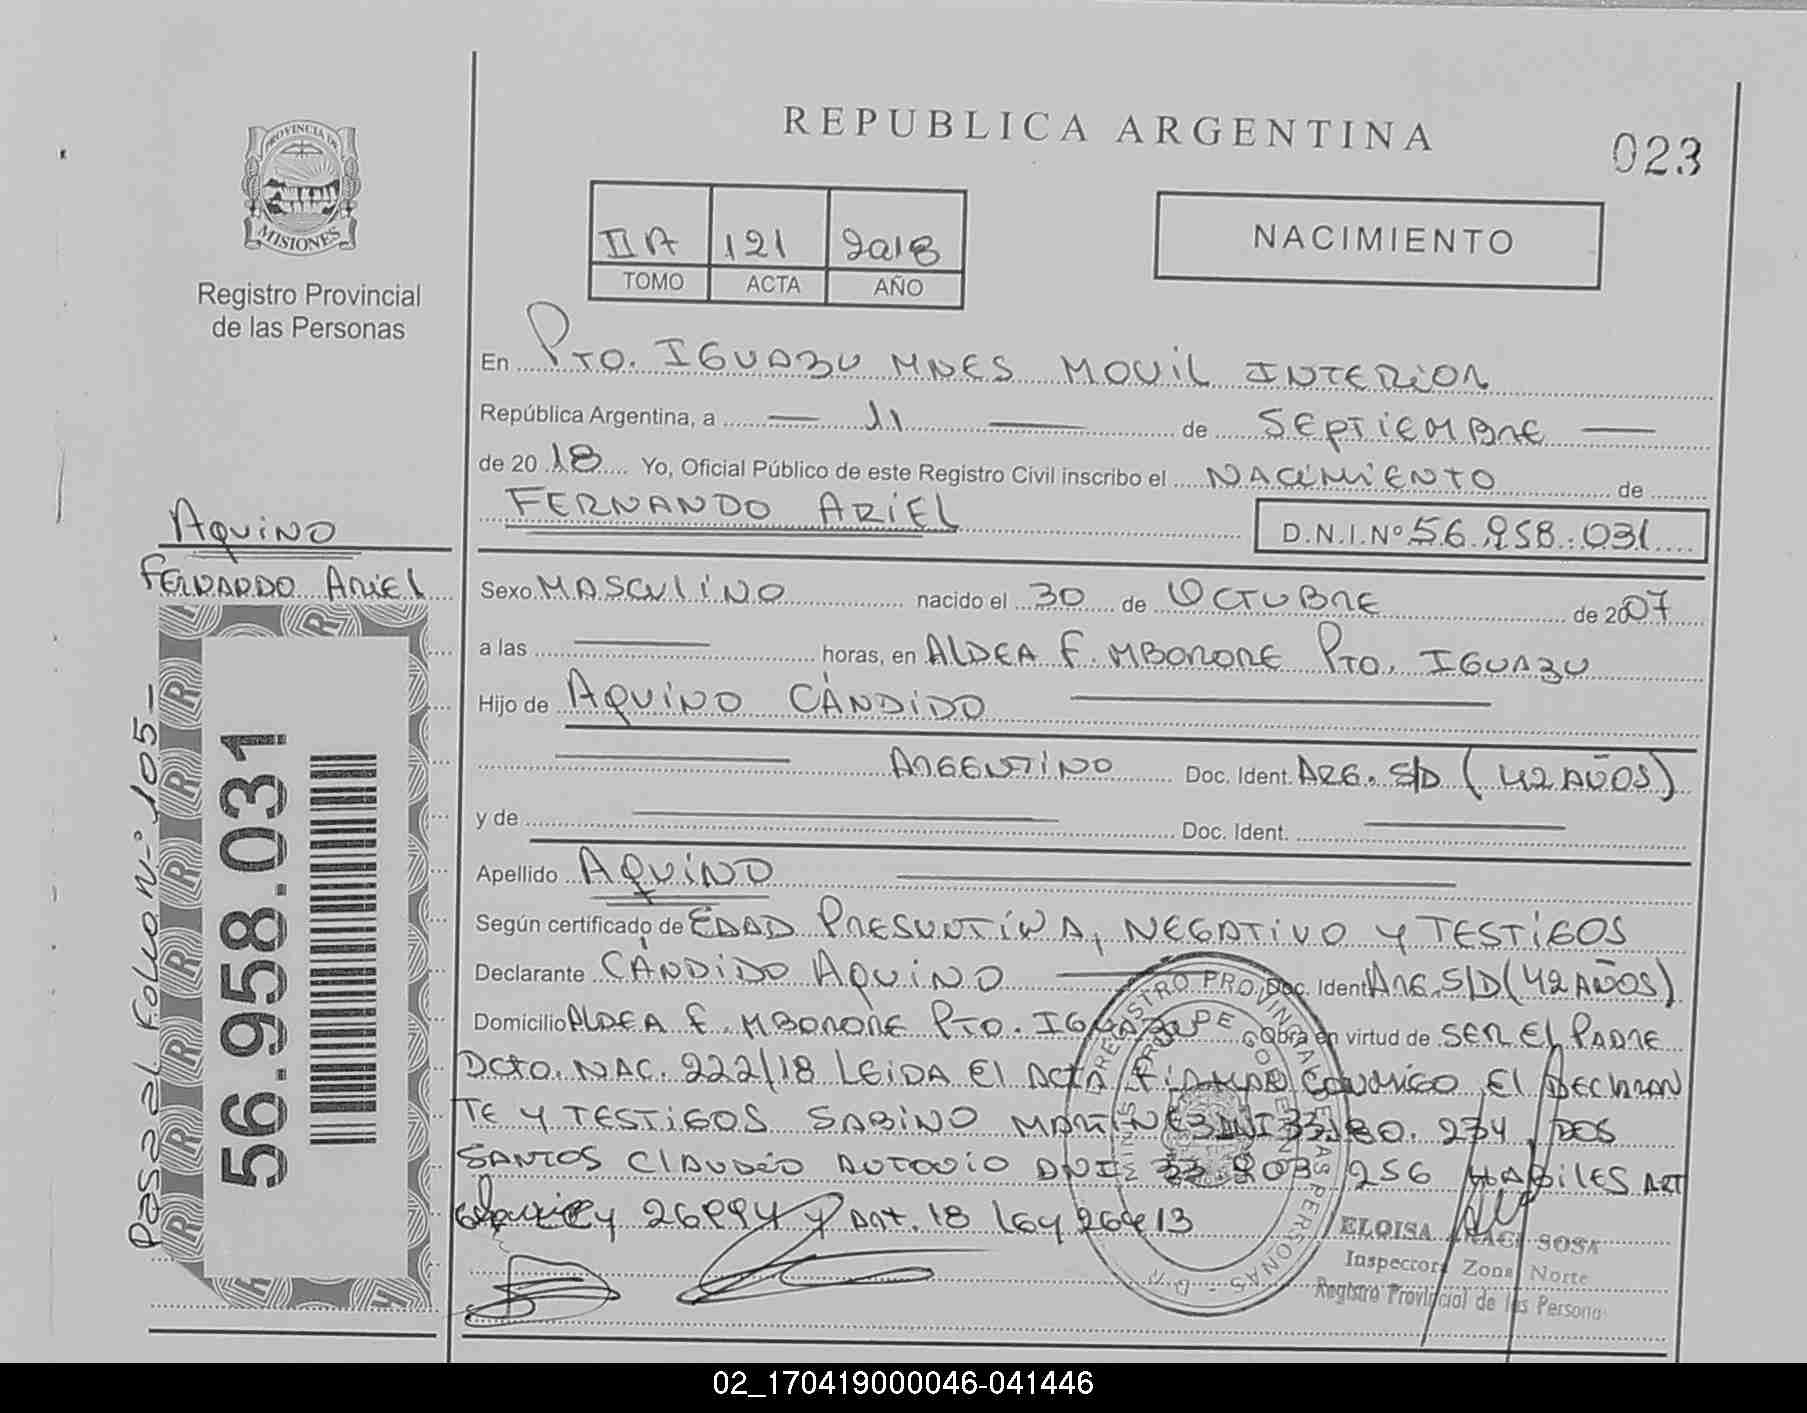 REPUBLICA ARGENTINA
023
PROVINCIA DE
MISIONES
Registro Provincial
de las Personas
II A 121 2018
TOMO ACTA AÑO
NACIMIENTO
En PTO. IGUAZU MNES MOVIL INTERIOR
República Argentina, a — 11 — de SEPTIEMBRE —
de 20 18 Yo, Oficial Público de este Registro Civil inscribo el NACIMIENTO de
FERNANDO ARIEL
D.N.I.Nº 56.958.031
AQUINO
FERNANDO ARIEL
Pasa al Folio Nº 105-
56.958.031
Sexo MASCULINO nacido el 30 de OCTUBRE de 2007
a las — horas, en ALDEA F. MBORORE PTO. IGUAZU
Hijo de AQUINO CÁNDIDO —
— ARGENTINO Doc. Ident. ARG. S/D (42 AÑOS)
y de — Doc. Ident. —
Apellido AQUINO —
Según certificado de EDAD PRESUNTIVA, NEGATIVO Y TESTIGOS
Declarante CÁNDIDO AQUINO — Doc. Ident ARG. S/D (42 AÑOS)
Domicilio ALDEA F. MBORORE PTO. IGUAZU Obra en virtud de SER EL PADRE
DCTO. NAC. 222/18 LEIDA EL ACTA FIRMAN CONMIGO EL DECLARAN
TE Y TESTIGOS SABINO MARTINEZ DNI 33.180.234, DOS
SANTOS CLAUDIO ANTONIO DNI 33 903 256 HABILES ART
ley 26994 y Art. 18 ley 26413
REGISTRO PROVINCIAL DE LAS PERSONAS
ELOISA ARACI SOSA
Inspectora Zona Norte
Registro Provincial de las Personas
02_170419000046-041446